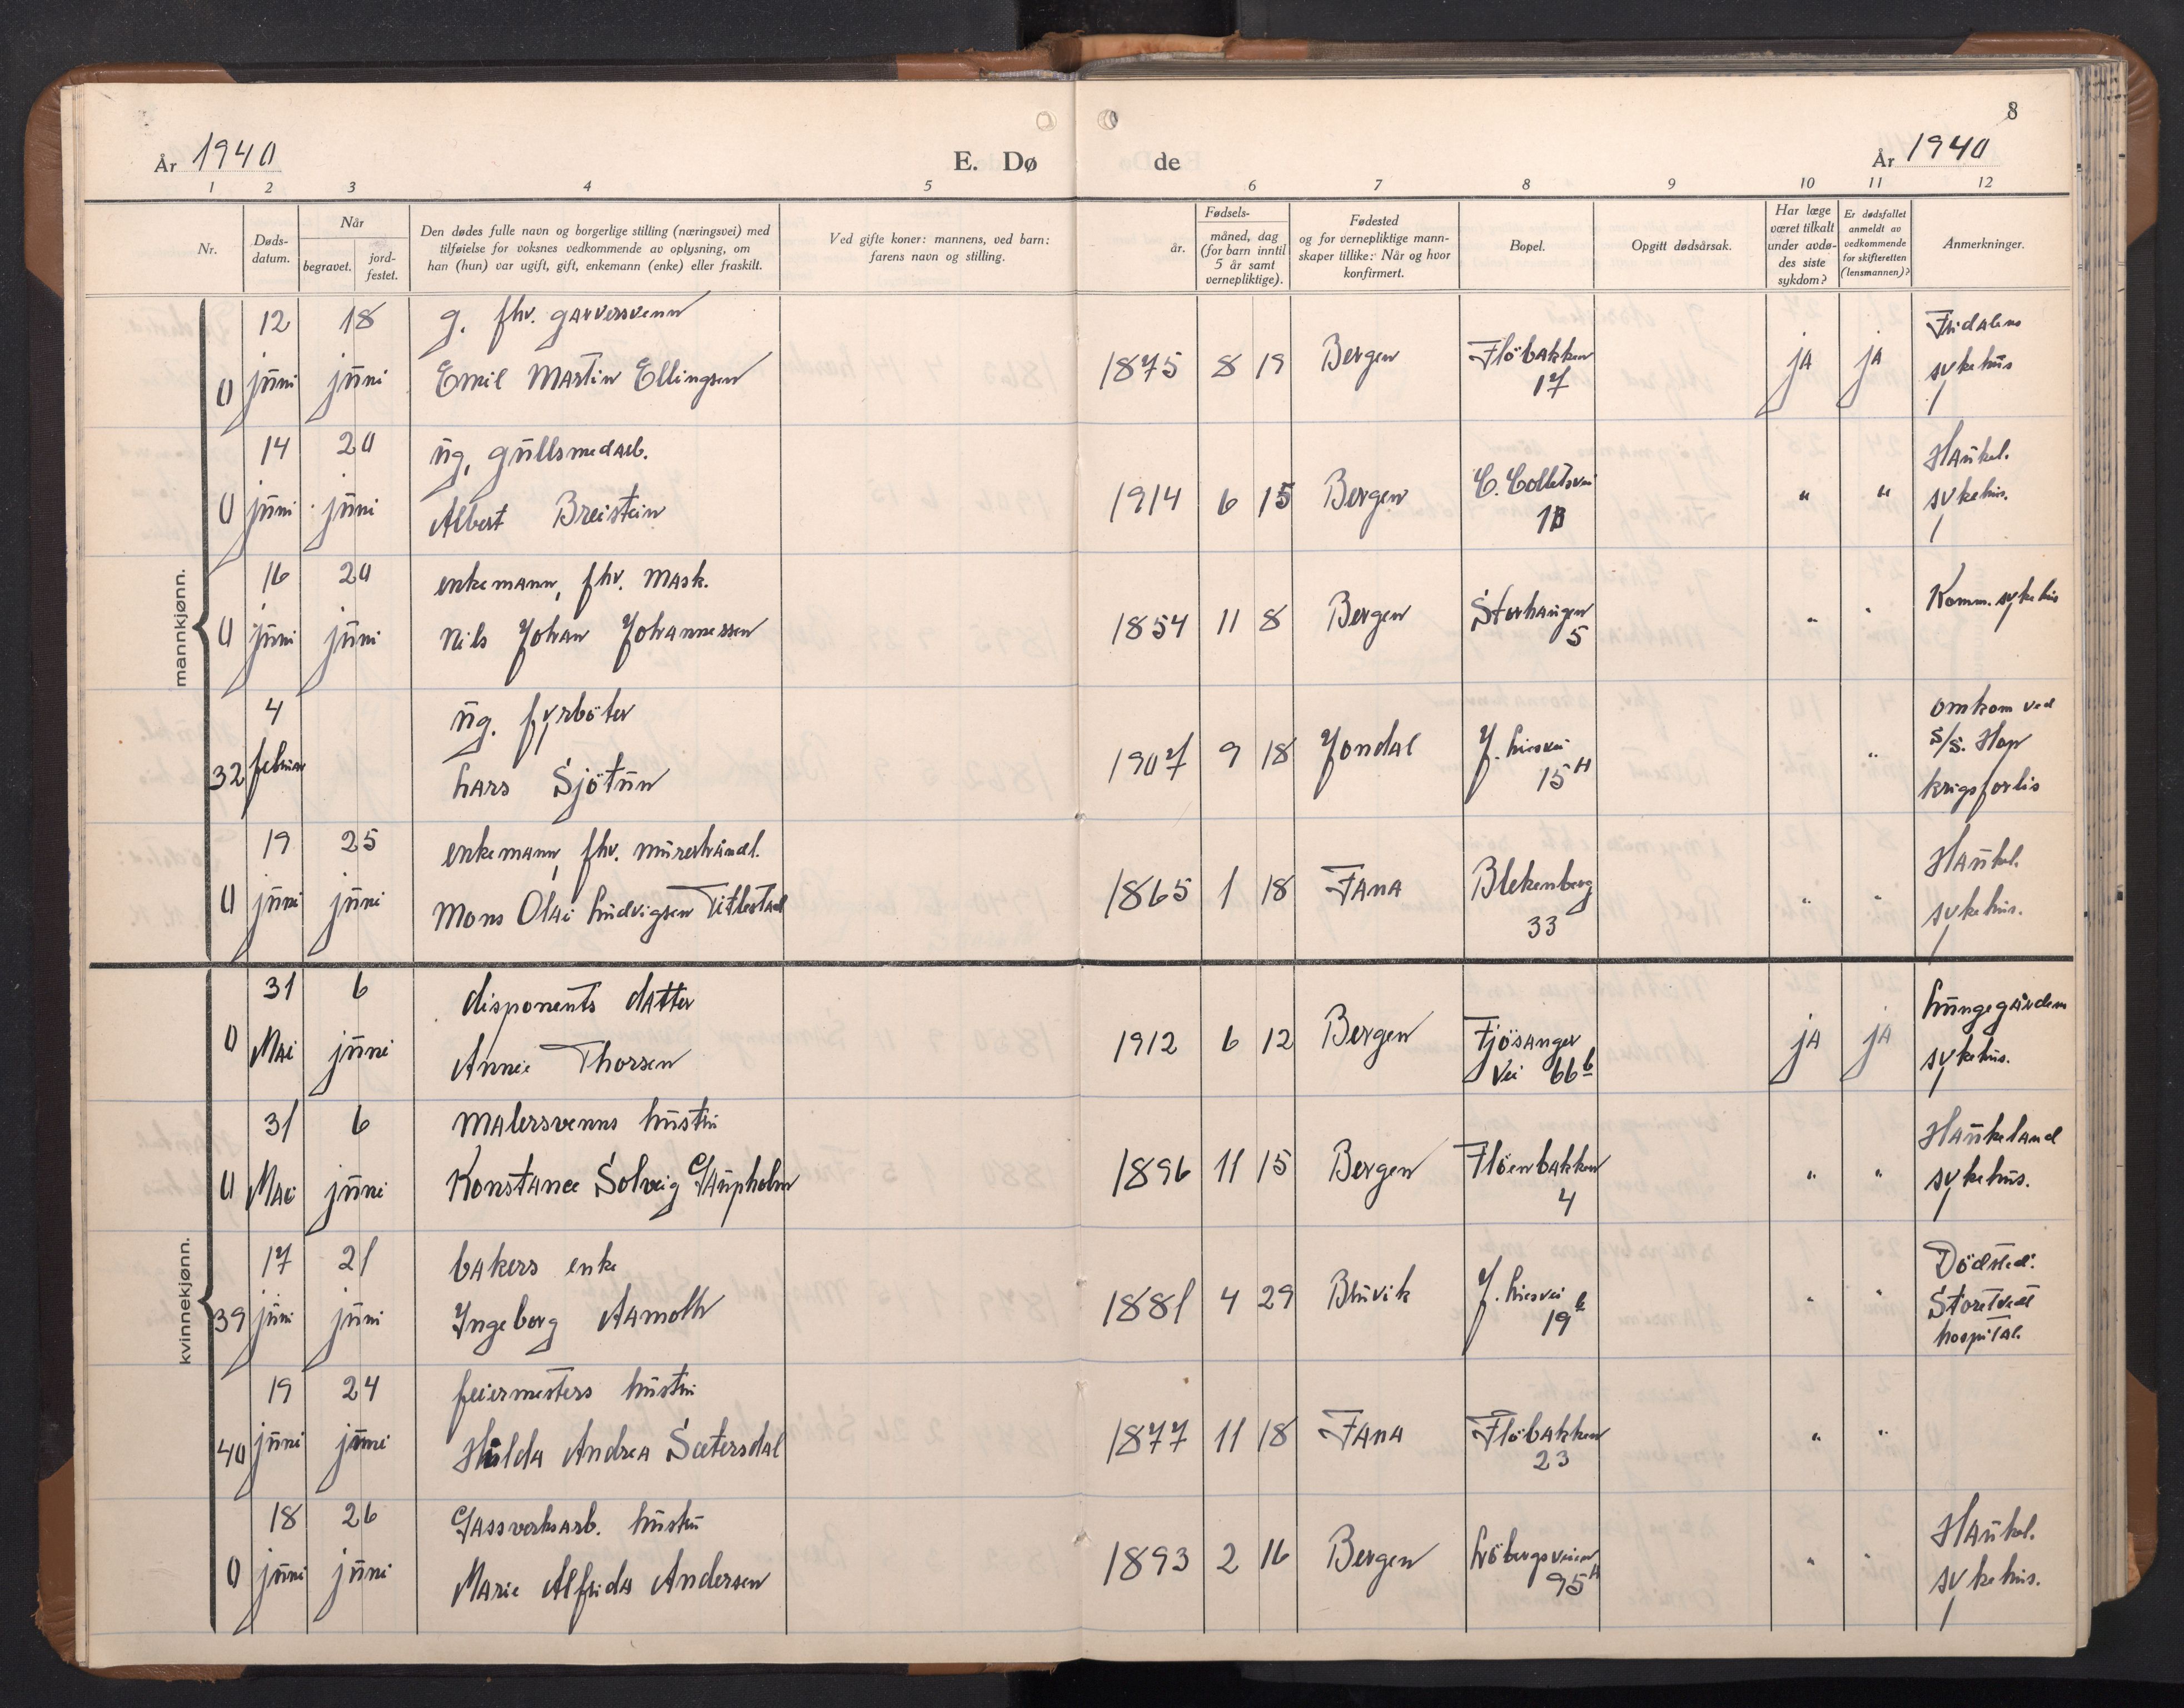 8
År 1940 E. Dø de År 1940
1 2 3 4 5 6 7 8 9 10 11 12
Nr.
Døds-
datum.
Når
begravet.
jord-
festet.
Den dødes fulle navn og borgerlige stilling (næringsvei) med
tilføielse for voksnes vedkommende av oplysning, om
han (hun) var ugift, gift, enkemann (enke) eller fraskilt.
Ved gifte koner: mannens, ved barn:
farens navn og stilling.
Fødsels-
år.
måned, dag
(for barn inntil
5 år samt
vernepliktige).
Fødested
og for vernepliktige mann-
skaper tillike: Når og hvor
konfirmert.
Bopel.
Opgitt dødsårsak.
Har læge
været tilkalt
under avdø-
des siste
sykdom?
Er dødsfallet
anmeldt av
vedkommende
for skifteretten
(lensmannen)?
Anmerkninger.
mannkjønn.
12 18 g. fhv. garversvenn Fridalens
0 juni juni Emil Martin Ellingsen 1875 8 19 Bergen Flöbakken ja ja sykehus
17
14 20 ug. gullsmedarb. Haukel.
0 juni juni Albert Breistein 1914 6 15 Bergen C. Colletsvei " " sykehus.
1B
16 20 enkemann, fhv. mask. Komm. sykehus
0 juni juni Nils Johan Johannessen 1854 11 8 Bergen Storhaugen " "
5
4 ug. fyrböter omkom ved
32 februar Lars Sjötun 1907 9 18 Jondal J. Liesvei " s/s. Hop
15A krigsforlis
19 25 enkemann, fhv. murerhåndl. Haukel.
0 juni juni Mons Olai Ludvigsen Titlestad 1865 1 18 Fana Blekenberg " " sykehus.
33
kvinnekjønn.
31 6 disponents datter Lungegårdens
0 Mai juni Annie Thorsen 1912 6 12 Bergen Fjösanger ja ja sykehus.
vei 66b
31 6 malersvenns hustru Haukeland
0 Mai juni Konstance Solveig Gaupholm 1896 11 15 Bergen Flöenbakken " " sykehus.
4
17 21 bakers enke Dödsted:
39 juni juni Ingeborg Aamoth 1881 4 29 Bruvik J. Liesvei " " Storetvedt
19b hospital.
19 24 feiermesters hustru
40 juni juni Hulda Andrea Sætersdal 1877 11 18 Fana Flöbakken " "
23
18 26 Gassverksarb. hustru Haukel.
0 juni juni Marie Alfrida Andersen 1893 2 16 Bergen Löbergsveien " " sykehus.
95A